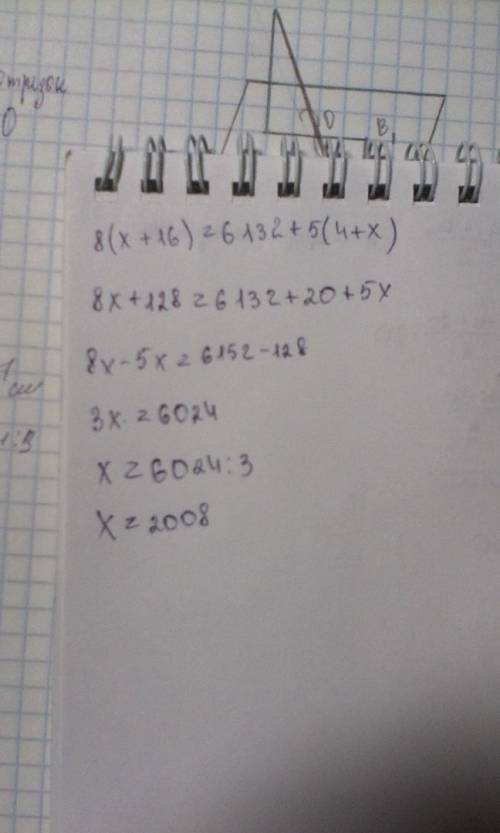 отрезок
О
D
В
8(x+16)=6132+5(4+x)
8x+128=6132+20+5x
8x-5x=6152-128
3x=6024
x=6024:3
x=2008